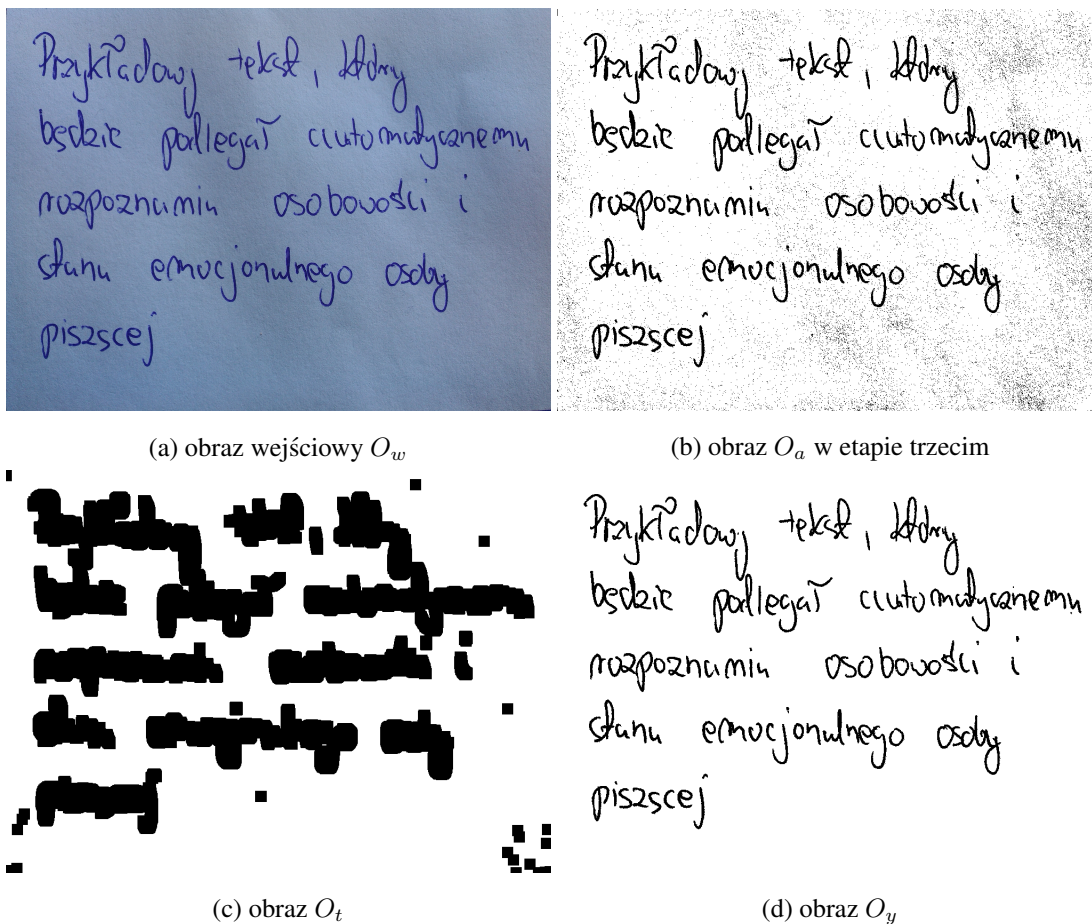 Przykładowy tekst, który
będzie podlegał automatycznemu
rozpoznaniu osobowości i
stanu emocjonalnego osoby
piszącej
Przykładowy tekst, który
będzie podlegał automatycznemu
rozpoznaniu osobowości i
stanu emocjonalnego osoby
piszącej
(a) obraz wejściowy O_w
(b) obraz O_a w etapie trzecim
Przykładowy tekst, który
będzie podlegał automatycznemu
rozpoznaniu osobowości i
stanu emocjonalnego osoby
piszącej
(c) obraz O_t
(d) obraz O_y